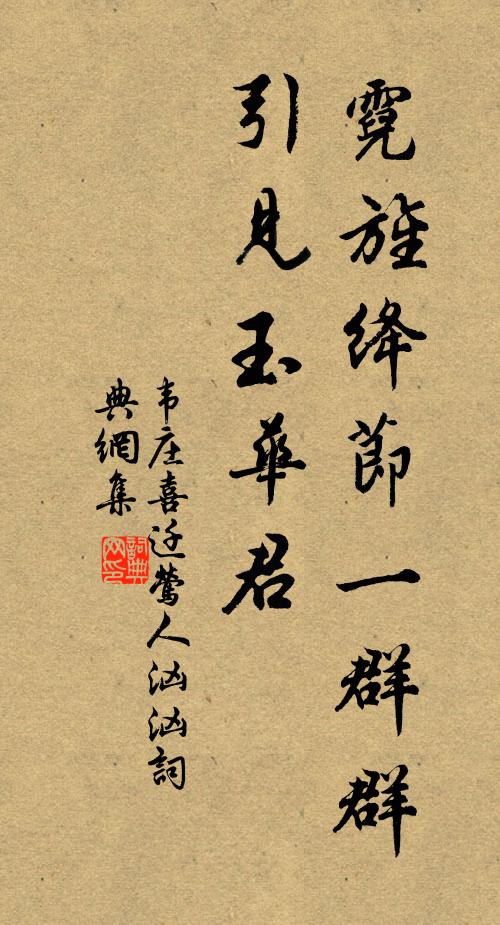 霓旌绛節一群群
引見玉華君
韦庄喜迁鶯人汹汹詞
典網集
詞典網印